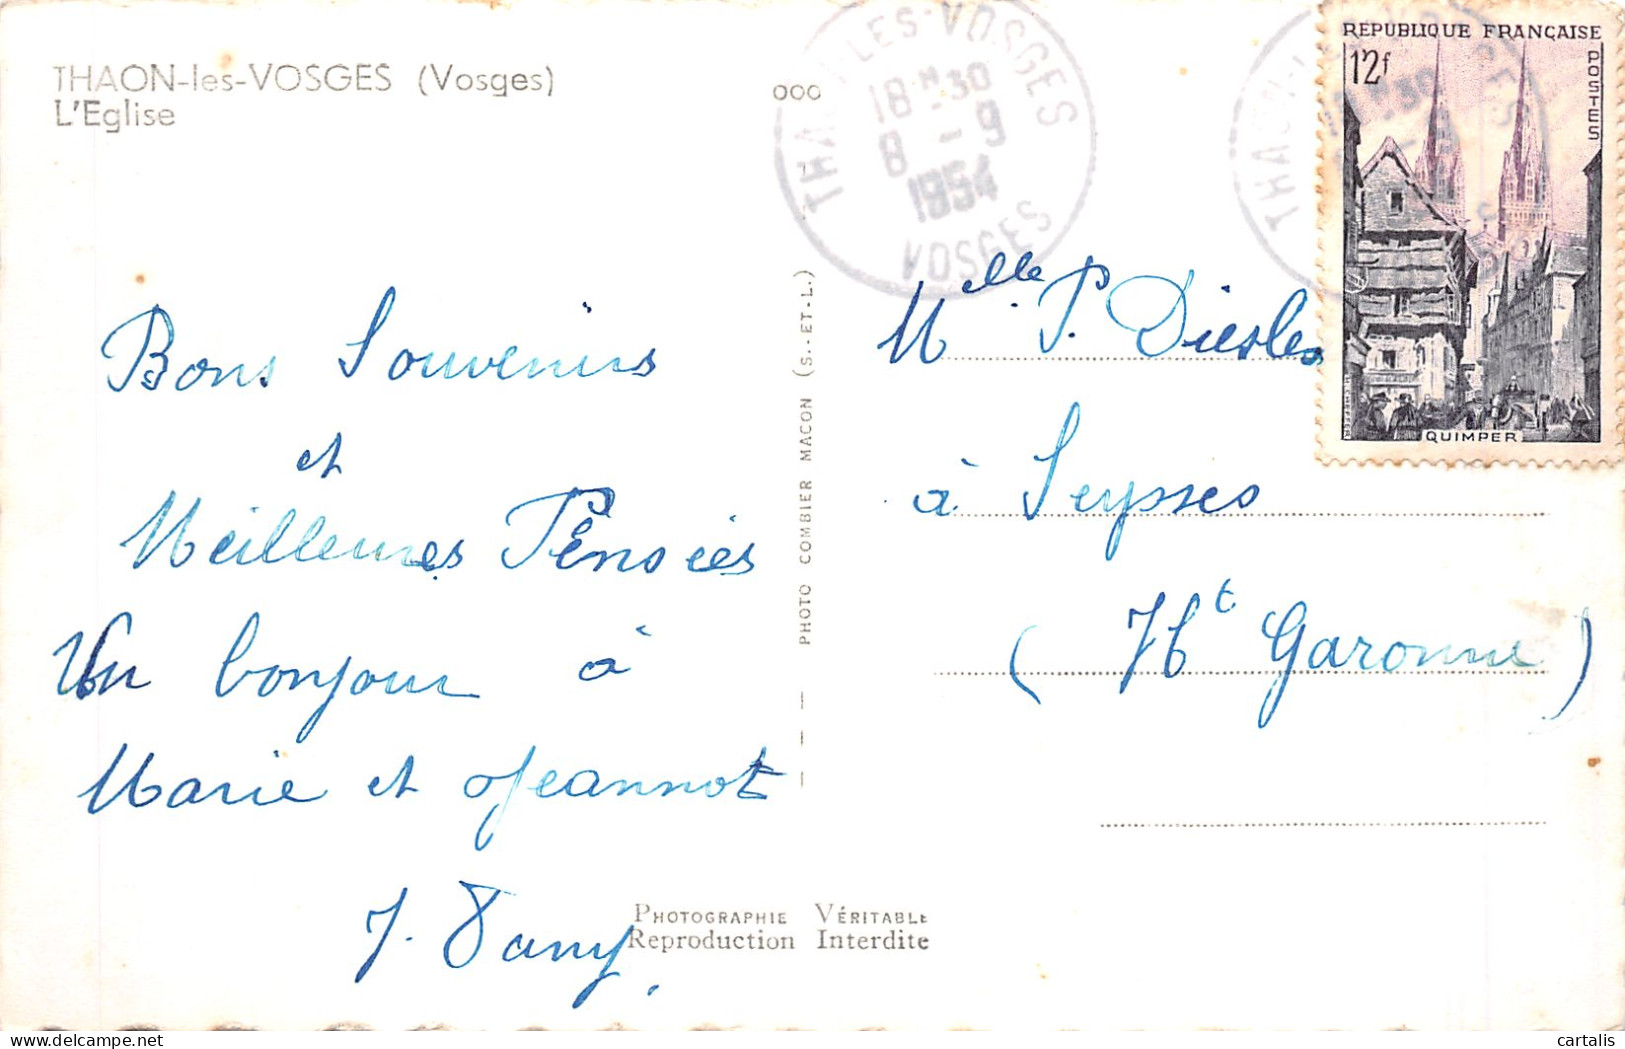 THAON-les-VOSGES (Vosges)
L'Eglise
Bons Souvenirs
et
Meilleures Pensées
Un bonjour à
Marie et Jeannot
J. Dany
PHOTO COMBIER MACON (S.-ET-L.)
PHOTOGRAPHIE VÉRITABLE
Reproduction Interdite
000
THAON-LES-VOSGES
18H30
8 - 9
1954
VOSGES
REPUBLIQUE FRANÇAISE
12f
POSTES
QUIMPER
Melle P.
à Seysses
(Hte Garonne)
cartalis